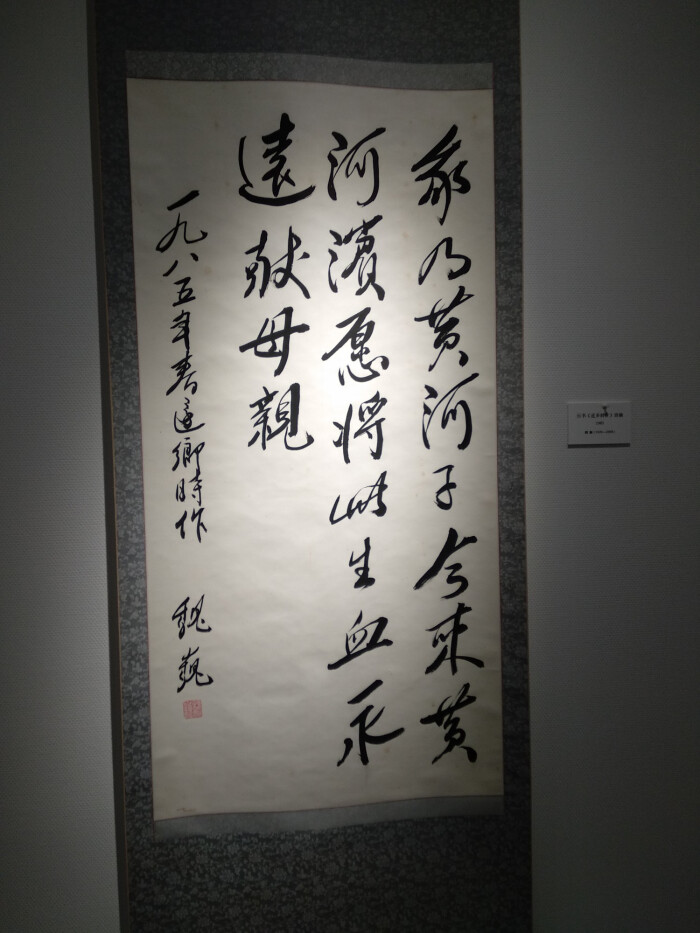 我乃黄河子今来黄
河濱愿将此生血永
遠献母親
一九八五年春還鄉時作
魏巍